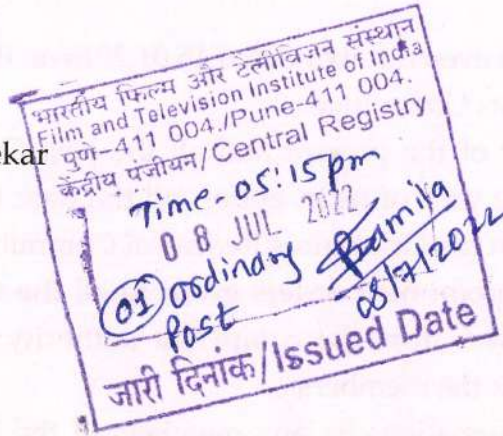 ekar
भारतीय फिल्म और टेलीविज़न संस्थान
Film and Television Institute of India
पुणे-411 004./Pune-411 004.
केंद्रीय पंजीयन/Central Registry
Time-05:15pm
08 JUL 2022
01 ordinary
Post
08/7/2022
जारी दिनांक/Issued Date